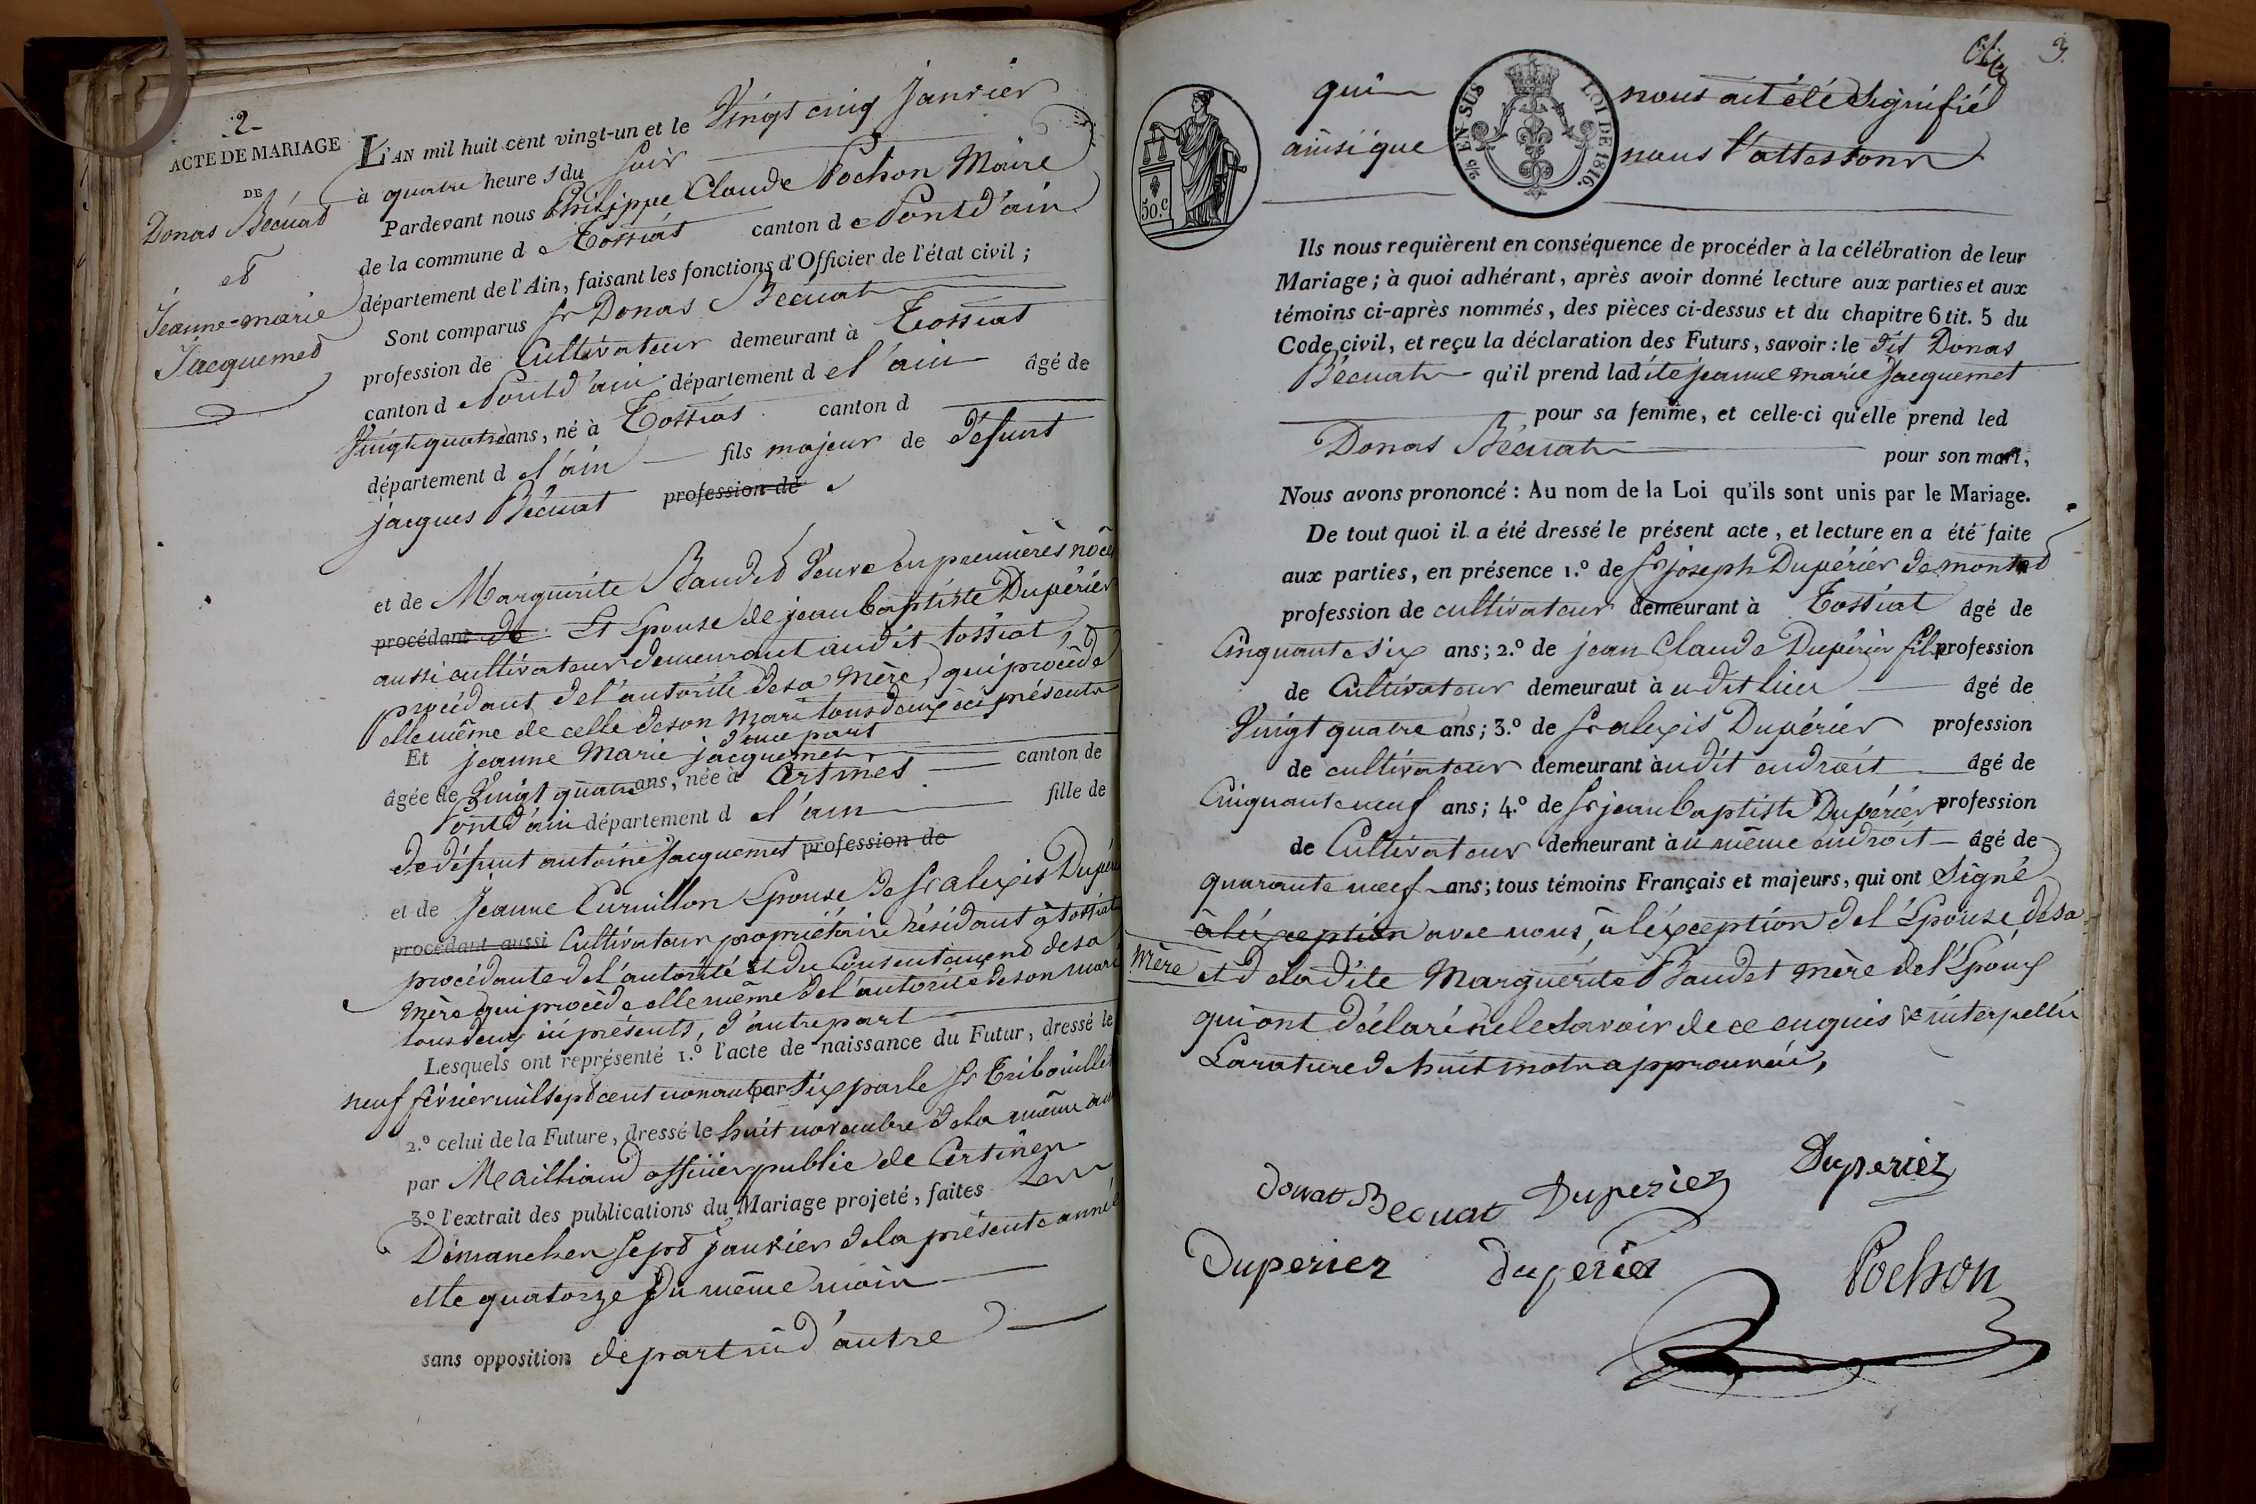 2
ACTE DE MARIAGE
DE
Donas Bécuat
et
Jeanne-marie
Jacquemet
L'AN mil huit cent vingt-un et le Vingt cinq Janvier
à quatre heures du soir
Pardevant nous Philippe Claude Pochon Maire
de la commune de Tossiat canton de Pont d'ain
département de l'Ain, faisant les fonctions d'Officier de l'état civil ;
Sont comparus Sr Donas Bécuat
profession de Cultivateur demeurant à Tossiat
canton de Pont d'ain département de l'ain âgé de
Vingt quatre ans, né à Tossiat canton d
département de l'ain fils majeur de défunt
jacques Bécuat profession de
et de Marguerite Baudet Veuve en premières nôces
procédant de Et Epouse de jean baptiste Dupérier
aussi cultivateur demeurant audit tossiat,
procédant de l'autorité de sa mère, qui procède
elle même de celle de son mari tous deux ici présents
d'une part
Et jeanne Marie jacquemet
âgée de Vingt quatre ans, née à Certines canton de
Pont d'ain département de l'ain fille de
de défunt antoine Jacquemet profession de
et de Jeanne Curnillon Epouse de Sr alexis Dupérier
procédant aussi Cultivateur propriétaire résidant à tossiat
procédante de l'autorité et du Consentement de sa
mère qui procède elle même de l'autorité de son mari
tous deux ici présents, d'autre part
Lesquels ont représenté 1.º l'acte de naissance du Futur, dressé le
neuf février mil sept cent nonante six par le Sr Tribouillet
2.º celui de la Future, dressé le huit novembre de la même année
par Mailliand officier public de Certines
3.º l'extrait des publications du Mariage projeté, faites Les
Dimanches sept janvier de la présente année
et le quatorze du même mois
sans opposition de part ni d'autre
3.
50.c
5/10 EN SUS
LOI DE 1816.
qui nous ait été signifié
ainsi que nous l'attestons
Ils nous requièrent en conséquence de procéder à la célébration de leur
Mariage ; à quoi adhérant, après avoir donné lecture aux parties et aux
témoins ci-après nommés, des pièces ci-dessus et du chapitre 6 tit. 5 du
Code civil, et reçu la déclaration des Futurs, savoir : le dit Donas
Bécuat qu'il prend ladite jeanne marie Jacquemet
pour sa femme, et celle-ci qu'elle prend led
Donas Bécuat pour son mari,
Nous avons prononcé : Au nom de la Loi qu'ils sont unis par le Mariage.
De tout quoi il a été dressé le présent acte, et lecture en a été faite
aux parties, en présence 1.º de Sr joseph Dupérier de montod
profession de cultivateur demeurant à Tossiat âgé de
Cinquante six ans ; 2.º de jean Claude Dupérier fils profession
de Cultivateur demeuraut à udit lieu âgé de
Vingt quatre ans ; 3.º de Sr alexis Dupérier profession
de cultivateur demeurant àudit endroit âgé de
Cinquante neuf ans ; 4.º de Sr jean baptiste Dupérier profession
de Cultivateur demeurant àu même endroit âgé de
quarante neuf ans ; tous témoins Français et majeurs, qui ont Signé
à l'exception avec nous, à l'éxception de l'Epouse, de sa
mère et de ladite Marguérite Baudet mère de l'Epoux
qui ont déclaré ne le savoir de ce enquis & interpellés
La rature de huit mots approuvée,
donat Becuat Duperier Duperier
Duperier duperier Pochon